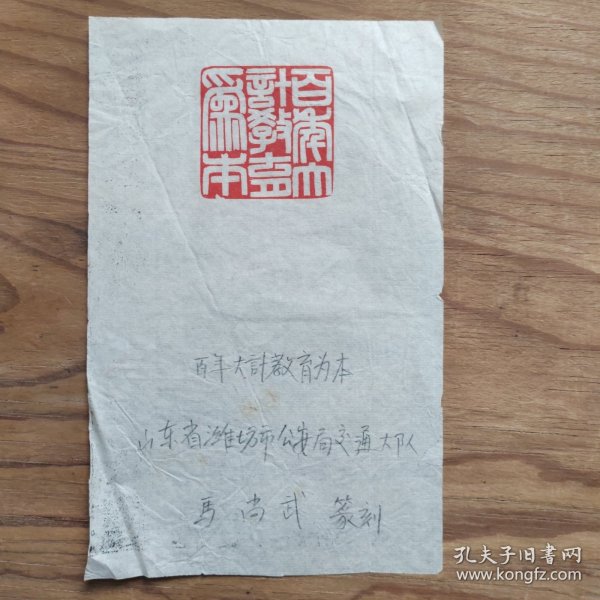 百年大計教育為本
百年大計教育为本
山东省潍坊市公安局交通大队
马尚武 篆刻
孔夫子旧书网
www.kongfz.com